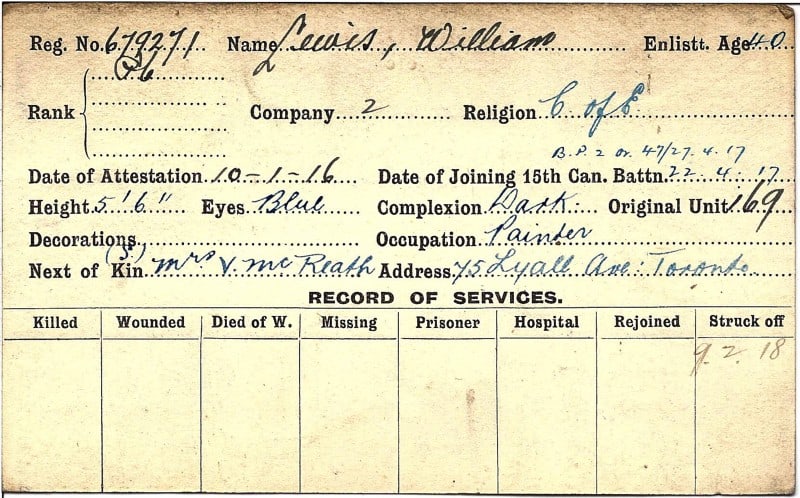 Reg. No. 679271 Name Lewis, William Enlistt. Age 40
Pte
Rank Company 2 Religion C of E
B.P. 2 Or. 47/27.4.17
Date of Attestation 10-1-16 Date of Joining 15th Can. Battn. 22.4.17
Height 5'6" Eyes Blue Complexion Dark. Original Unit 169
Decorations Occupation Painter
Next of Kin (S.) Mrs V. McReath Address 75 Lyall Ave: Toronto
RECORD OF SERVICES.
Killed Wounded Died of W. Missing Prisoner Hospital Rejoined Struck off
9.2.18